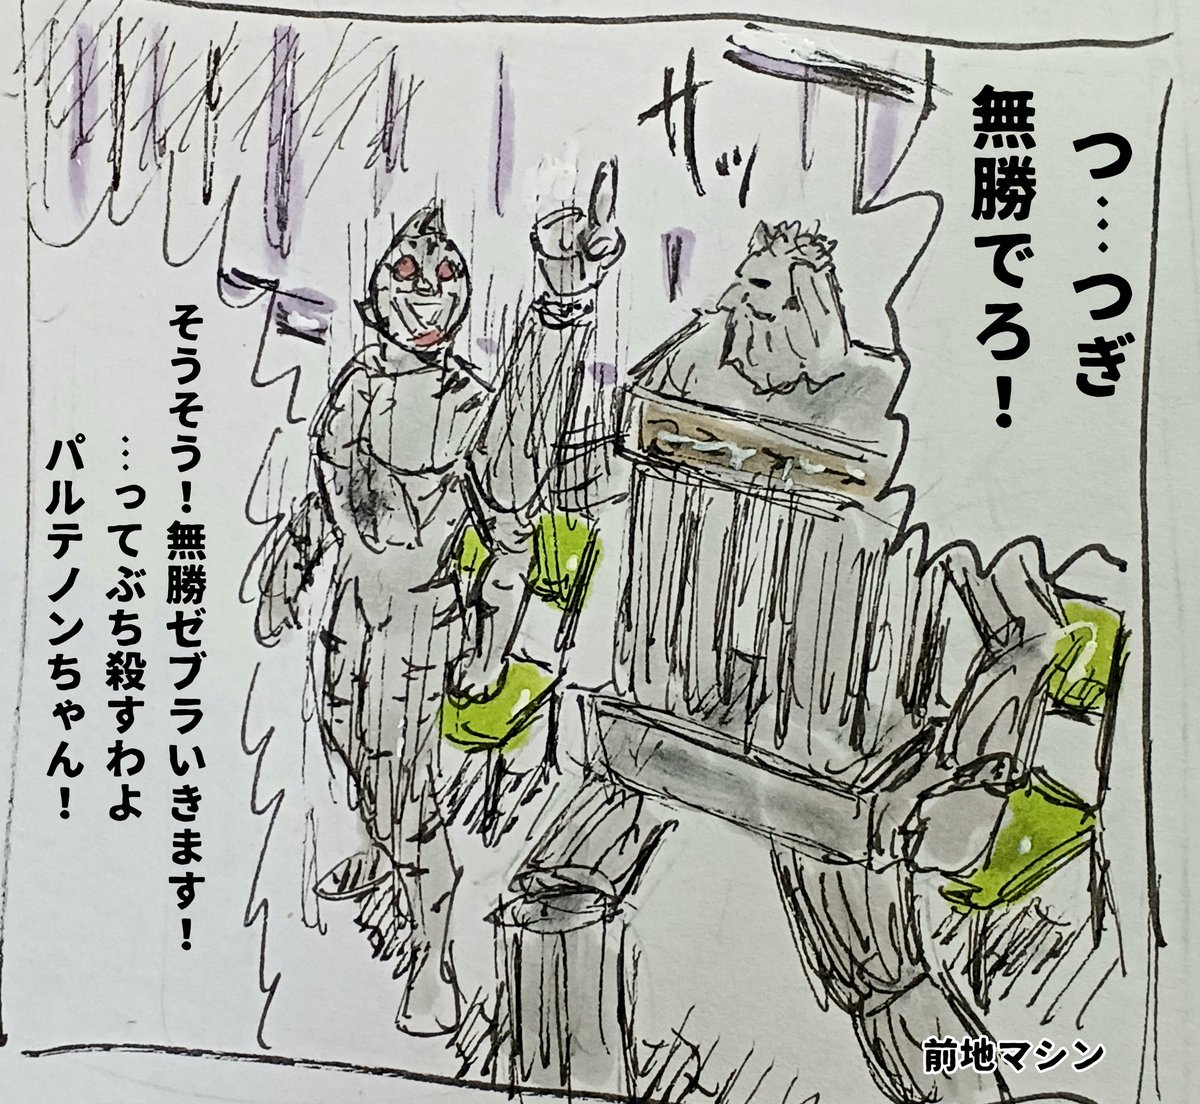 つ…つぎ
無勝でろ！
ザッ
そうそう！無勝ゼブラいきます！
…ってぶち殺すわよ
パルテノンちゃん！
前地マシン